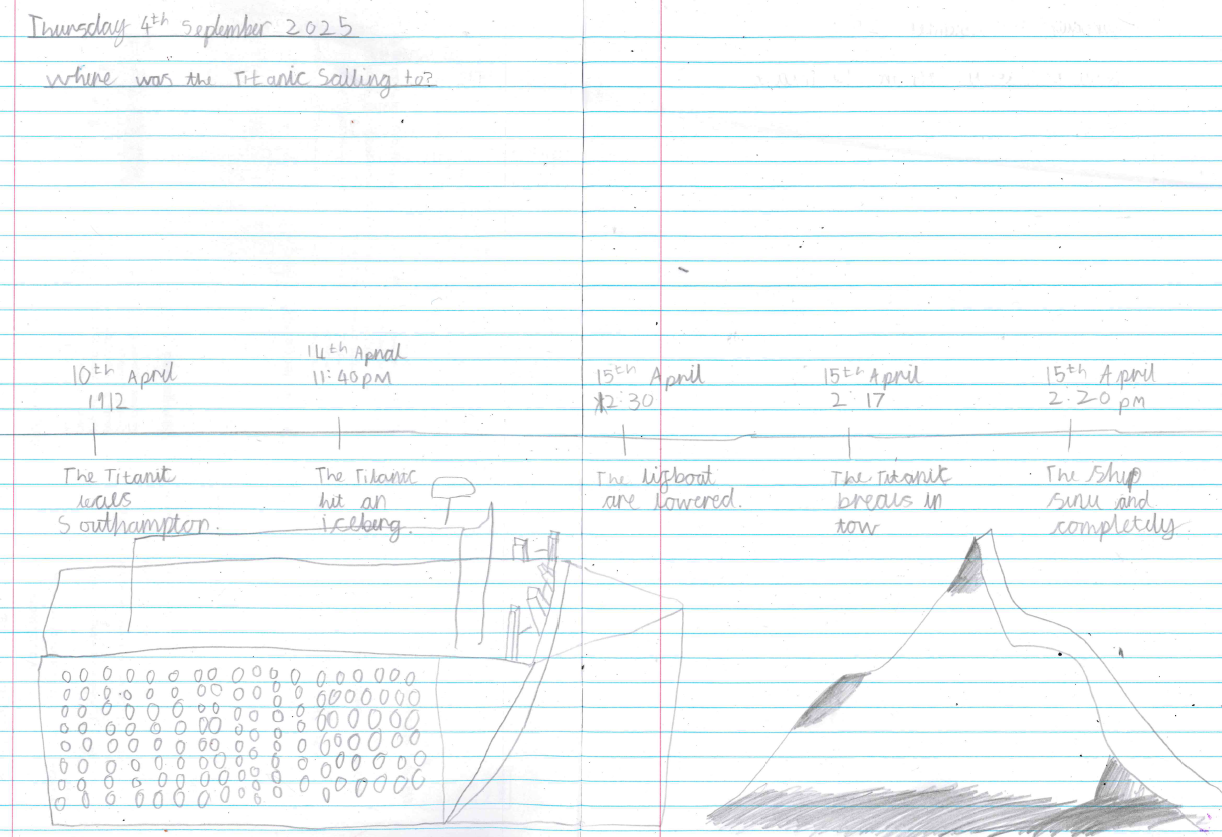 Thursday 4th September 2025
where was the Titanic Sailling to?
10th April
1912
14th Apral
11:40pm
15th April
12:30
15th April
2:17
15th April
2:20 pm
The Titanic
leaves
Southampton.
The Titanic
hit an
iceberg.
The lifboat
are lowered.
The Titanic
breaks in
tow
The Ship
sunk and
completely.